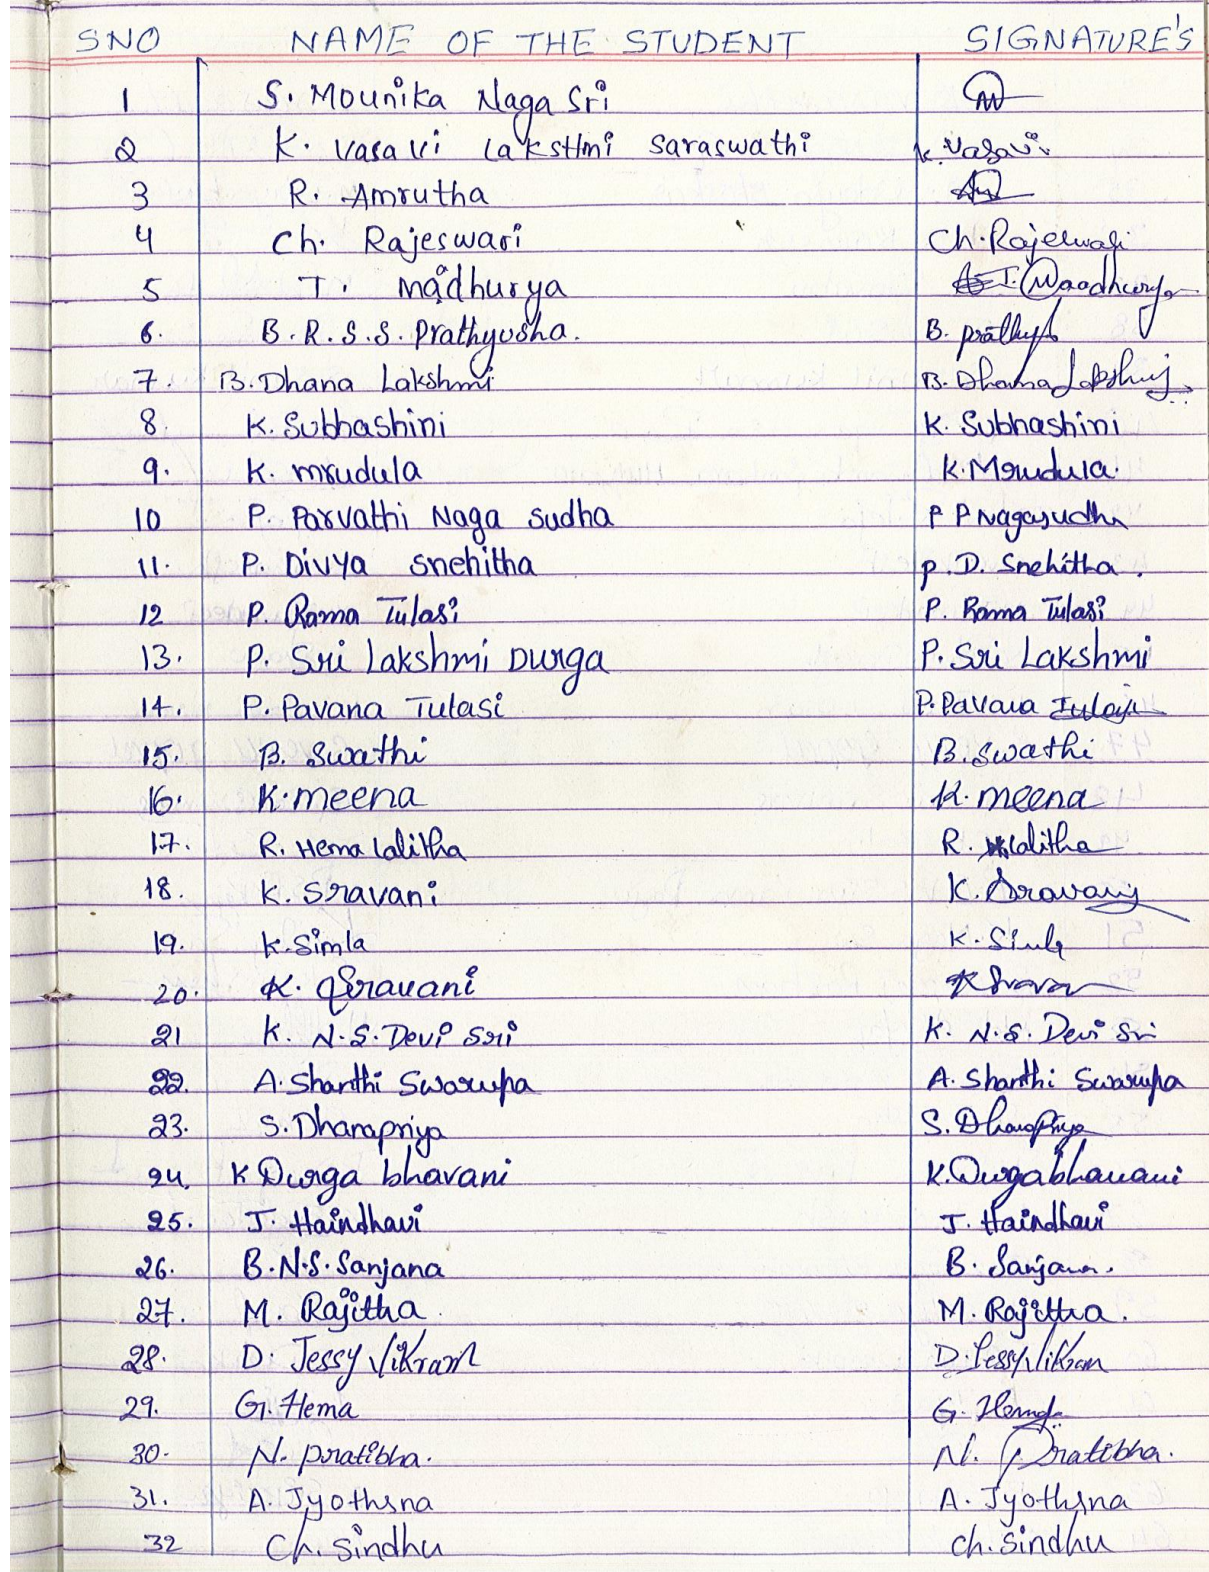 SNO NAME OF THE STUDENT SIGNATURE'S
1 S. Mounika Naga Sri
2 K. Vasavi Lakshmi Saraswathi K. Vasavi
3 R. Amrutha
4 Ch. Rajeswari Ch. Rajeswari
5 T. Madhurya T. Maadhurya
6. B.R.S.S. Prathyusha. B. Prathyu
7. B. Dhana Lakshmi B. Dhana Lakshmi
8. K. Subhashini K. Subhashini
9. K. Mrudula K. Mrudula.
10 P. Parvathi Naga Sudha P P Nagasudha
11. P. Divya Snehitha P. D. Snehitha.
12 P. Rama Tulasi P. Rama Tulasi
13. P. Sri Lakshmi Durga P. Sri Lakshmi
14. P. Pavana Tulasi P. Pavana Tulasi
15. B. Swathi B. Swathi
16. K. Meena K. Meena
17. R. Hema Lalitha R. Lalitha
18. K. Sravani K. Sravani
19. K. Simla K. Simla
20. K. Sravani K Sravan
21 K. N.S. Devi Sri K. N.S. Devi Sri
22. A. Shanthi Swarupa A. Shanthi Swarupa
23. S. Dhanapriya S. Dhanapriya
24. K Durga bhavani K. Durga bhavani
25. J. Haindhavi J. Haindhavi
26. B.N.S. Sanjana B. Sanjana.
27. M. Rajitha M. Rajitha.
28. D. Jessy Vikram D. Jessy Vikram
29. G. Hema G. Hema
30. N. Pratibha. N. Pratibha.
31. A. Jyothsna A. Jyothsna
32 Ch. Sindhu Ch. Sindhu